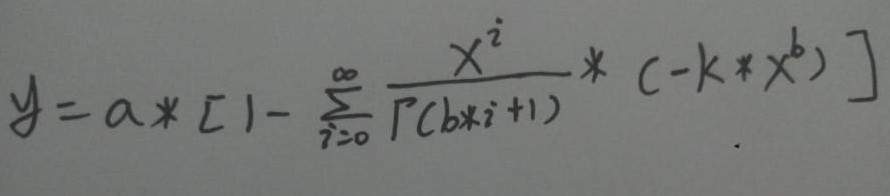 y = a * [1 - \sum_{i=0}^{\infty} \frac{x^i}{\Gamma(b*i+1)} * (-k*x^b)]